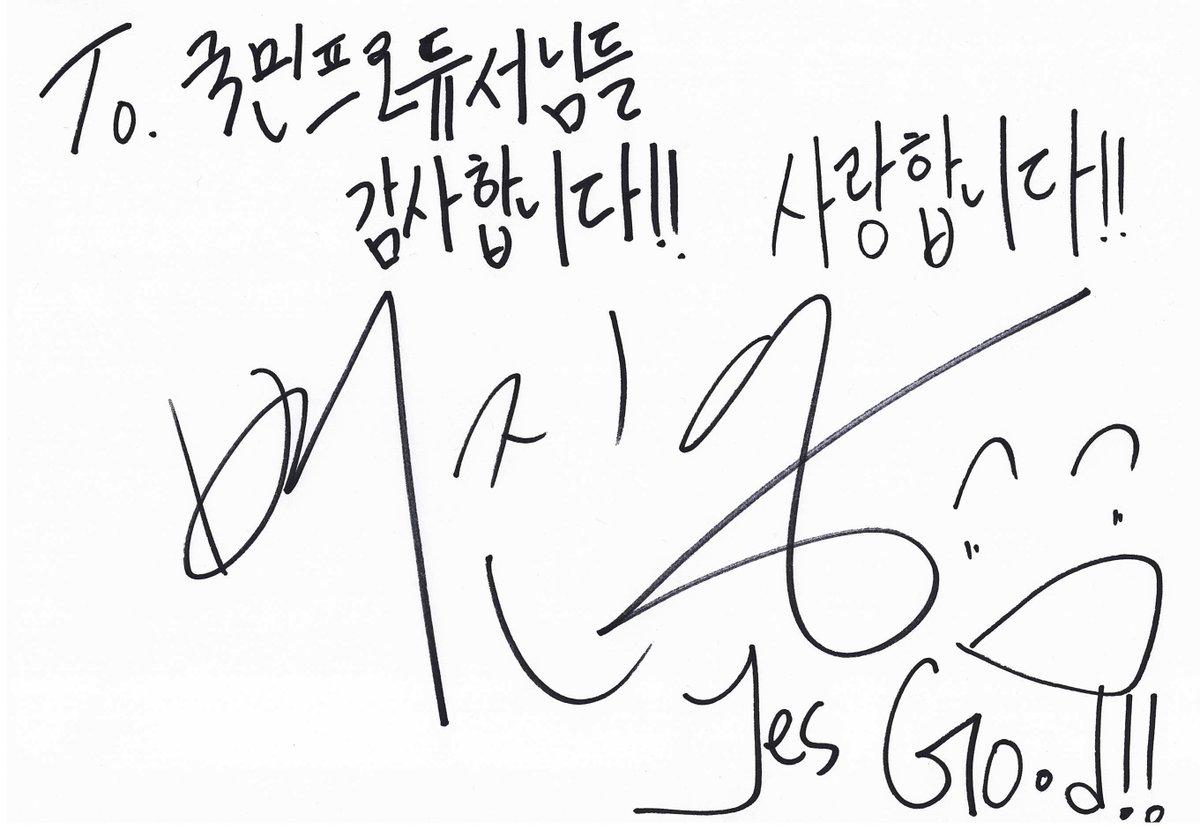 To. 국민프로듀서님들
감사합니다!! 사랑합니다!!
Yes Go.d!!